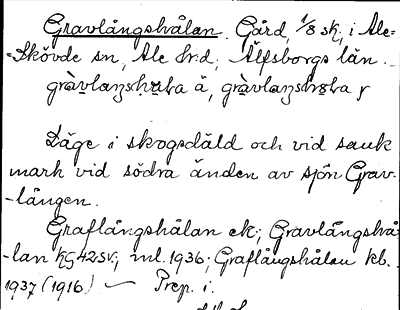 Gravlångshålan. Gård, 1/8 sk, i Ale-
-Skövde sn, Ale hd, Älfsborgs län.
Läge i skogsdäld och vid sank
mark vid södra änden av sjön Grav-
-lången.
Graflångshålan ek; Gravlångshå-
-lan KG 42 SV; ml. 1936; Graflångshålan kb.
1937 (1916) — Prep. i.